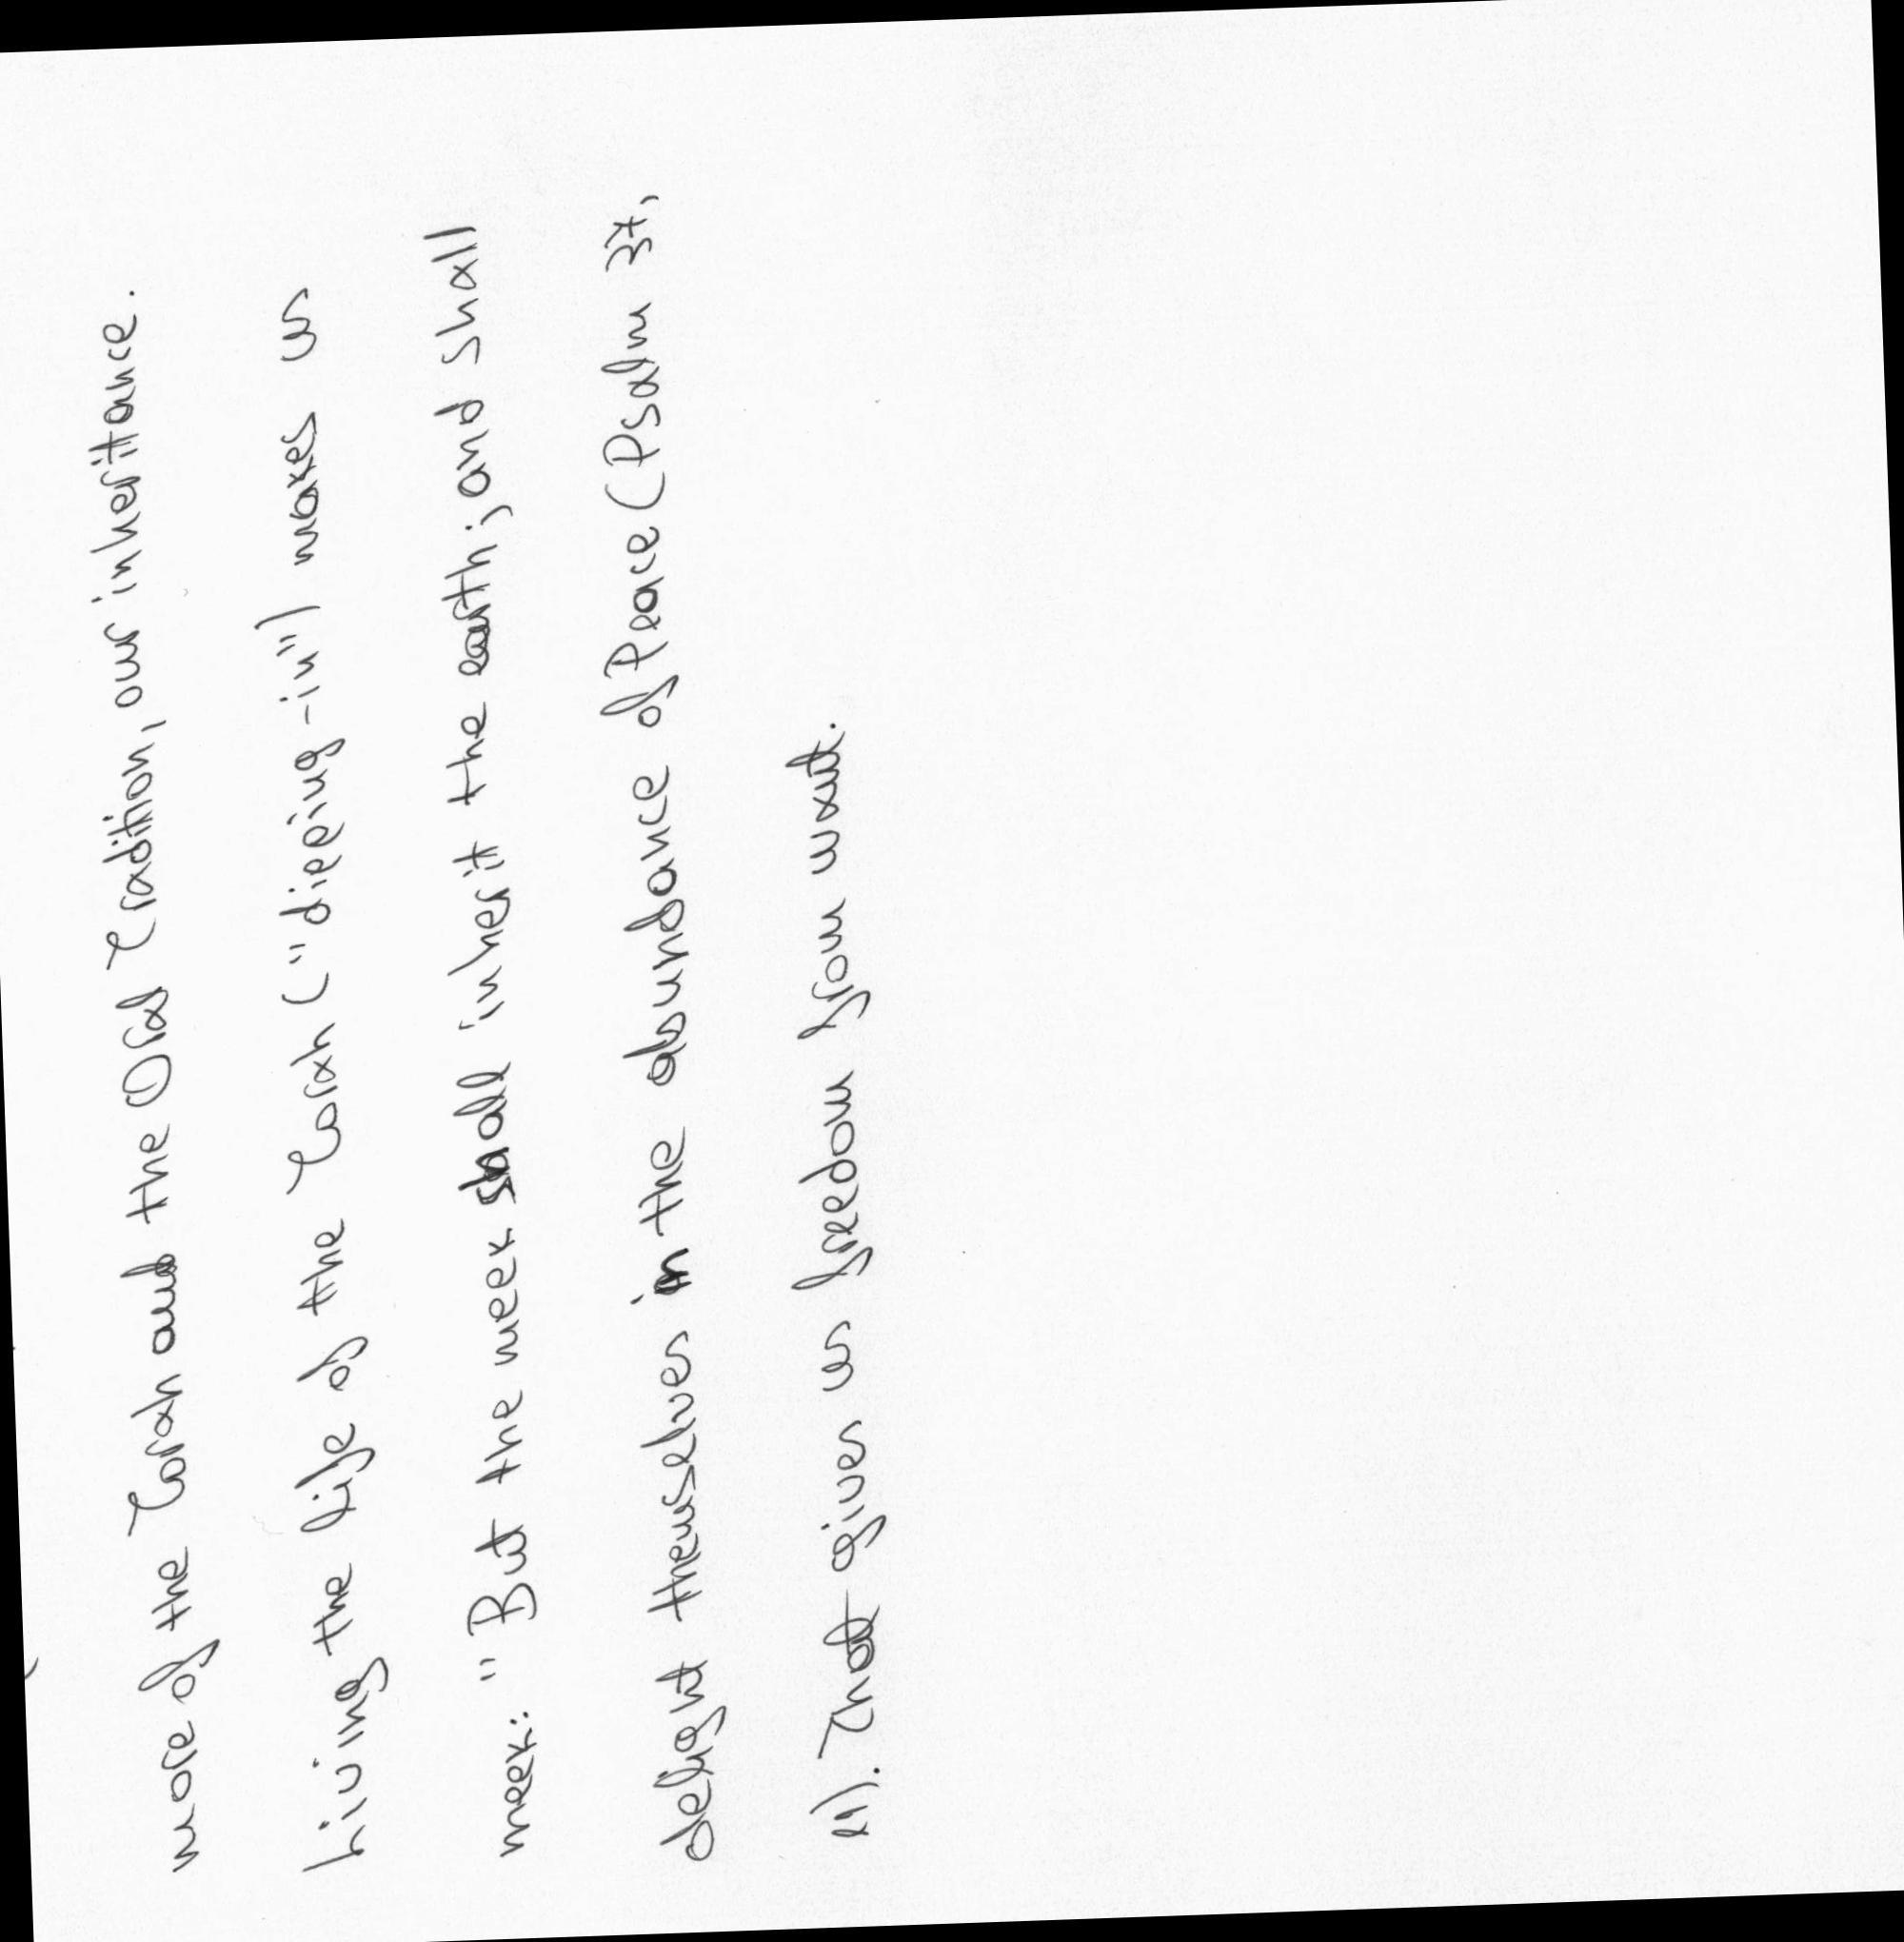 more of the Torah and the Old Tradition, our inheritance.
Living the life of the Torah ("dieeing-in") makes us
meek: "But the meek shall inherit the earth; and shall
delight themselves in the abundance of Peace (Psalm 37,
11). That gives us freedom from want.